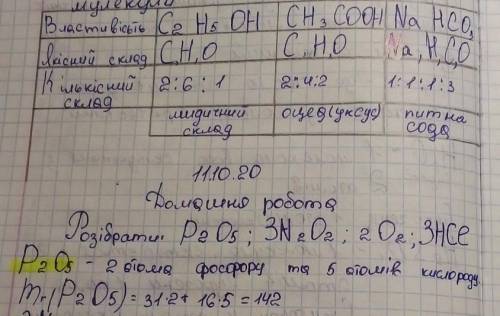 молекули
Властивість C2 H5 OH CH3 COOH Na HCO3
Якісний склад C,H,O C,H,O Na,H,C,O
Кількісний склад 2:6:1 2:4:2 1:1:1:3
склад оцea(уксус) питна сода
11.10.20
Домашня робота
Розібрати: P2O5; 3N2O2; 2O2; 3HCl
P2O5 - 2 атома фосфору та 5 атомів кислороду.
Mr(P2O5)=31·2+16·5=142